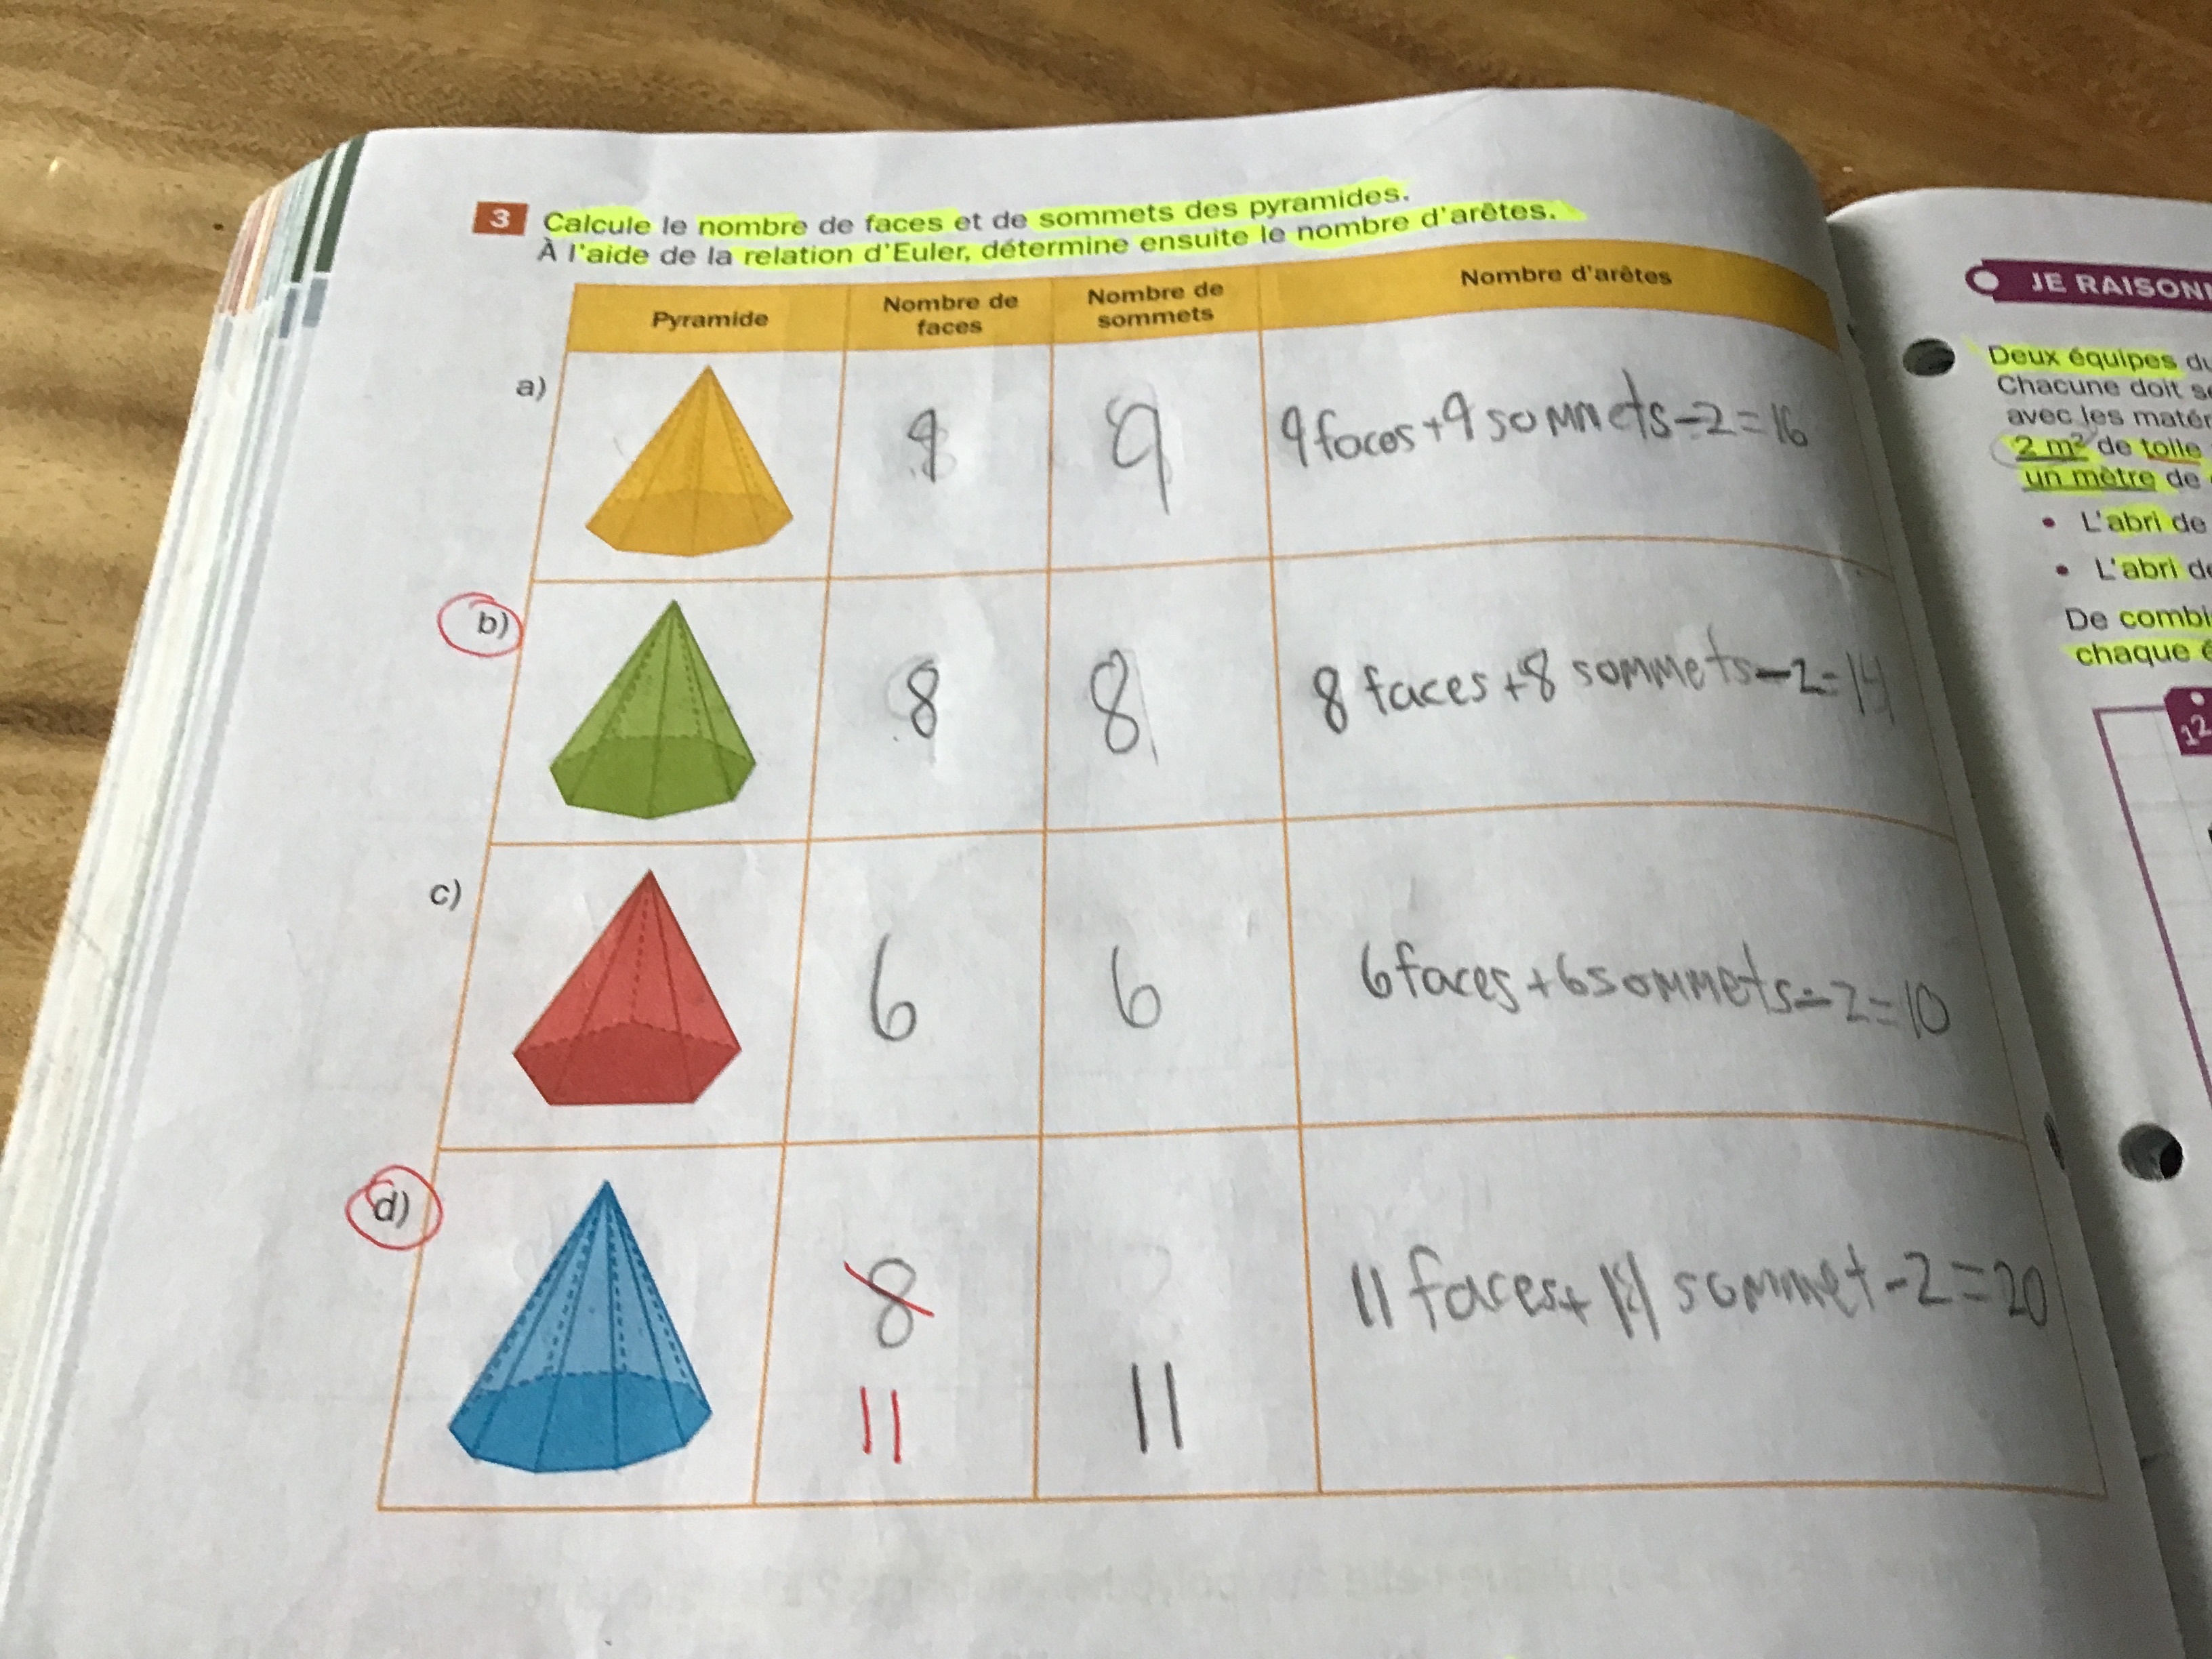 3 Calcule le nombre de faces et de sommets des pyramides.
À l'aide de la relation d'Euler, détermine ensuite le nombre d'arêtes.
Pyramide
Nombre de
faces
Nombre de
sommets
Nombre d'arêtes
a)
9
9
9 faces+9 sommets-2=16
b)
8
8
8 faces+8 sommets-2=14
c)
6
6
6 faces+6 sommets-2=10
d)
8
11
11
11 faces+11 sommet-2=20
JE RAISON
Deux équipes
Chacune doit
avec les
2 m² de toile
un mètre de
• L'abri de
• L'abri
De
chaque
12